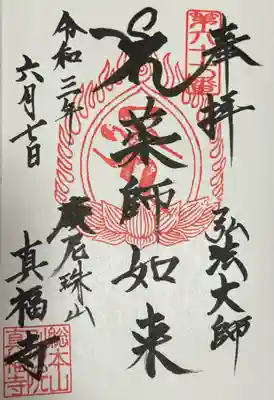 奉拝
第六十七番
弘法大師
薬師如来
令和三年
六月七日
摩尼珠山
真福寺
総本山
真福寺